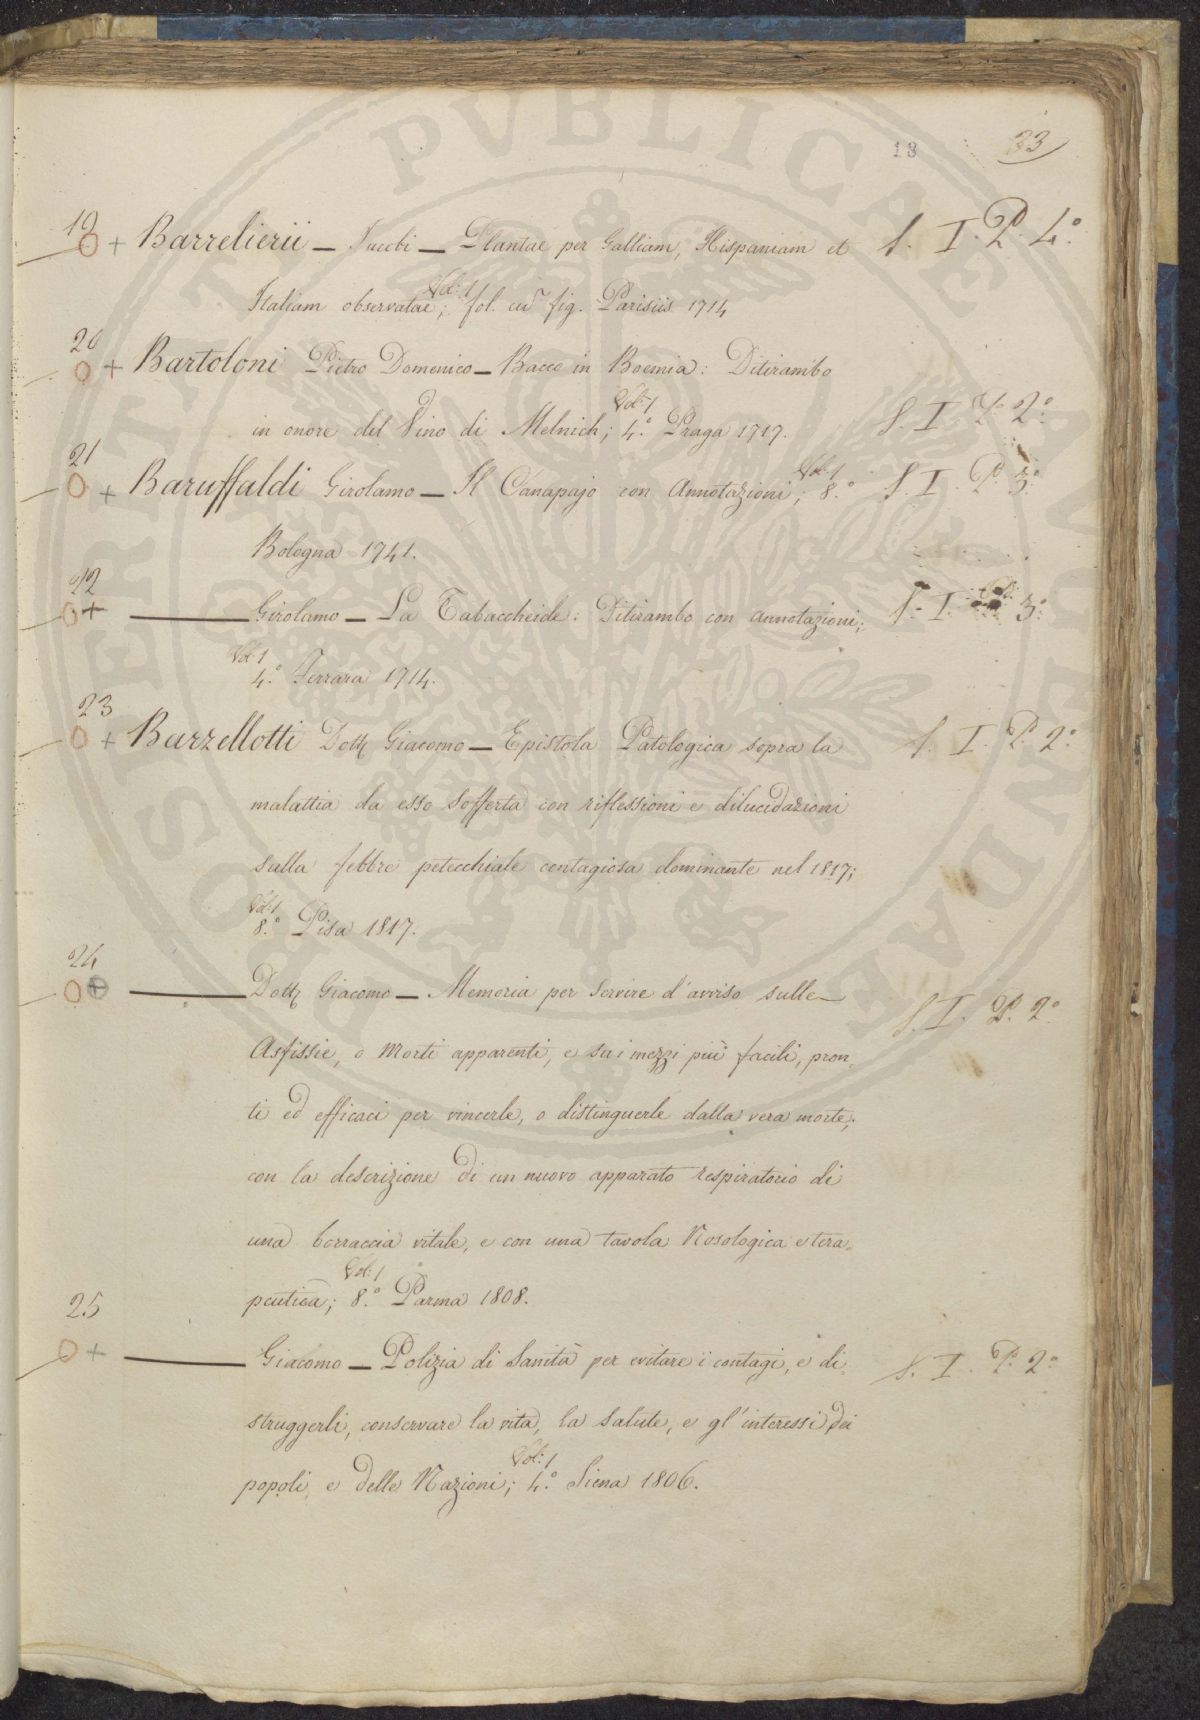 18 33
19
+ Barrelierii _ Jacobi _ Plantae per Galliam, Hispaniam et S. I. P. 4.°
Vol: 1
Italiam observatae; fol. cū fig. Parisiis 1714
20
+ Bartoloni Pietro Domenico _ Bacco in Boemia: Ditirambo
Vol: 1
in onore del Vino di Melnich; 4.° Praga 1717. S. I. P. 2.°
21
Vol: 1
+ Baruffaldi Girolamo _ Il Canapajo con Annotazioni; 8.° S. I. P. 3.°
Bologna 1741.
22
+ Girolamo _ La Tabaccheide: Ditirambo con annotazioni; S. I. 3.°
Vol: 1
4.° Ferrara 1714.
23
+ Barzellotti Dott Giacomo _ Epistola Patologica sopra la S. I. P. 2.°
malattia da esso sofferta con riflessioni e dilucidazioni
sulla febbre petecchiale contagiosa dominante nel 1817;
Vol: 1
8.° Pisa 1817.
24
+ Dott Giacomo _ Memoria per servire d'avviso sulle S. I. P. 2.°
Asfissie, o Morti apparenti, e su i mezzi più facili, pron
ti ed efficaci per vincerle, o distinguerle dalla vera morte;
con la descrizione di un nuovo apparato respiratorio di
una borraccia vitale, e con una tavola Nosologica e tera
Vol: 1
peutica; 8.° Parma 1808.
25
+ Giacomo _ Polizia di Sanità per evitare i contagi, e di S. I. P. 2.°
struggerli, conservare la vita, la salute, e gl'interessi dei
Vol: 1
popoli e delle Nazioni; 4.° Siena 1806.